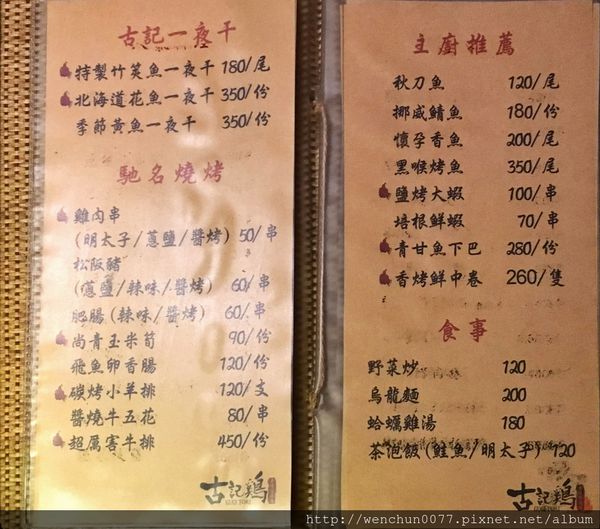 古記一夜干
特製竹筴魚一夜干 180/尾
北海道花魚一夜干 350/份
季節黃魚一夜干 350/份
馳名燒烤
雞肉串
(明太子/蔥鹽/醬烤) 50/串
松阪豬
(蔥鹽/辣味/醬烤) 60/串
肥腸(辣味/醬烤) 60/串
尚青玉米筍 90/份
飛魚卵香腸 120/份
碳烤小羊排 120/支
醬燒牛五花 80/串
超厲害牛排 450/份
古記鶏
主廚推薦
秋刀魚 120/尾
挪威鯖魚 180/份
懷孕香魚 200/尾
黑喉烤魚 350/尾
鹽烤大蝦 100/串
培根鮮蝦 70/串
青甘魚下巴 280/份
香烤鮮中卷 260/隻
食事
野菜炒 120
烏龍麵 200
蛤蠣雞湯 180
茶泡飯(鮭魚/明太子) 120
古記鶏
http://wenchun0077.pixnet.net/album